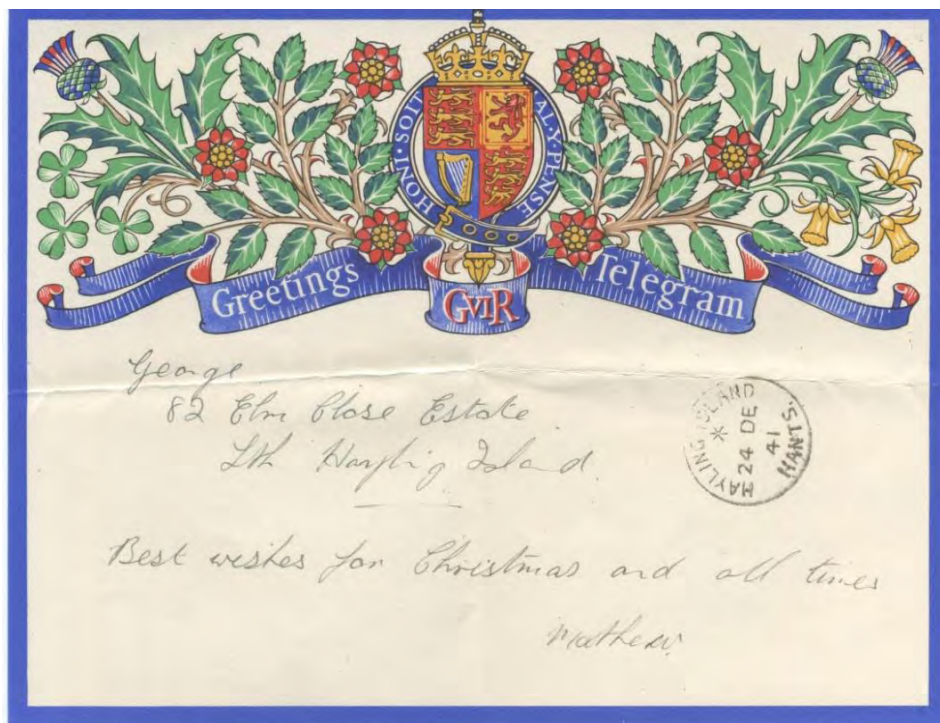 HONI·SOIT AL·Y·PENSE
Greetings Telegram
GVIR
George
82 Elm Close Estate
Sth Hayling Island
HAYLING ISLAND
*
24 DE
41
HANTS.
Best wishes for Christmas and all times
Mathew.